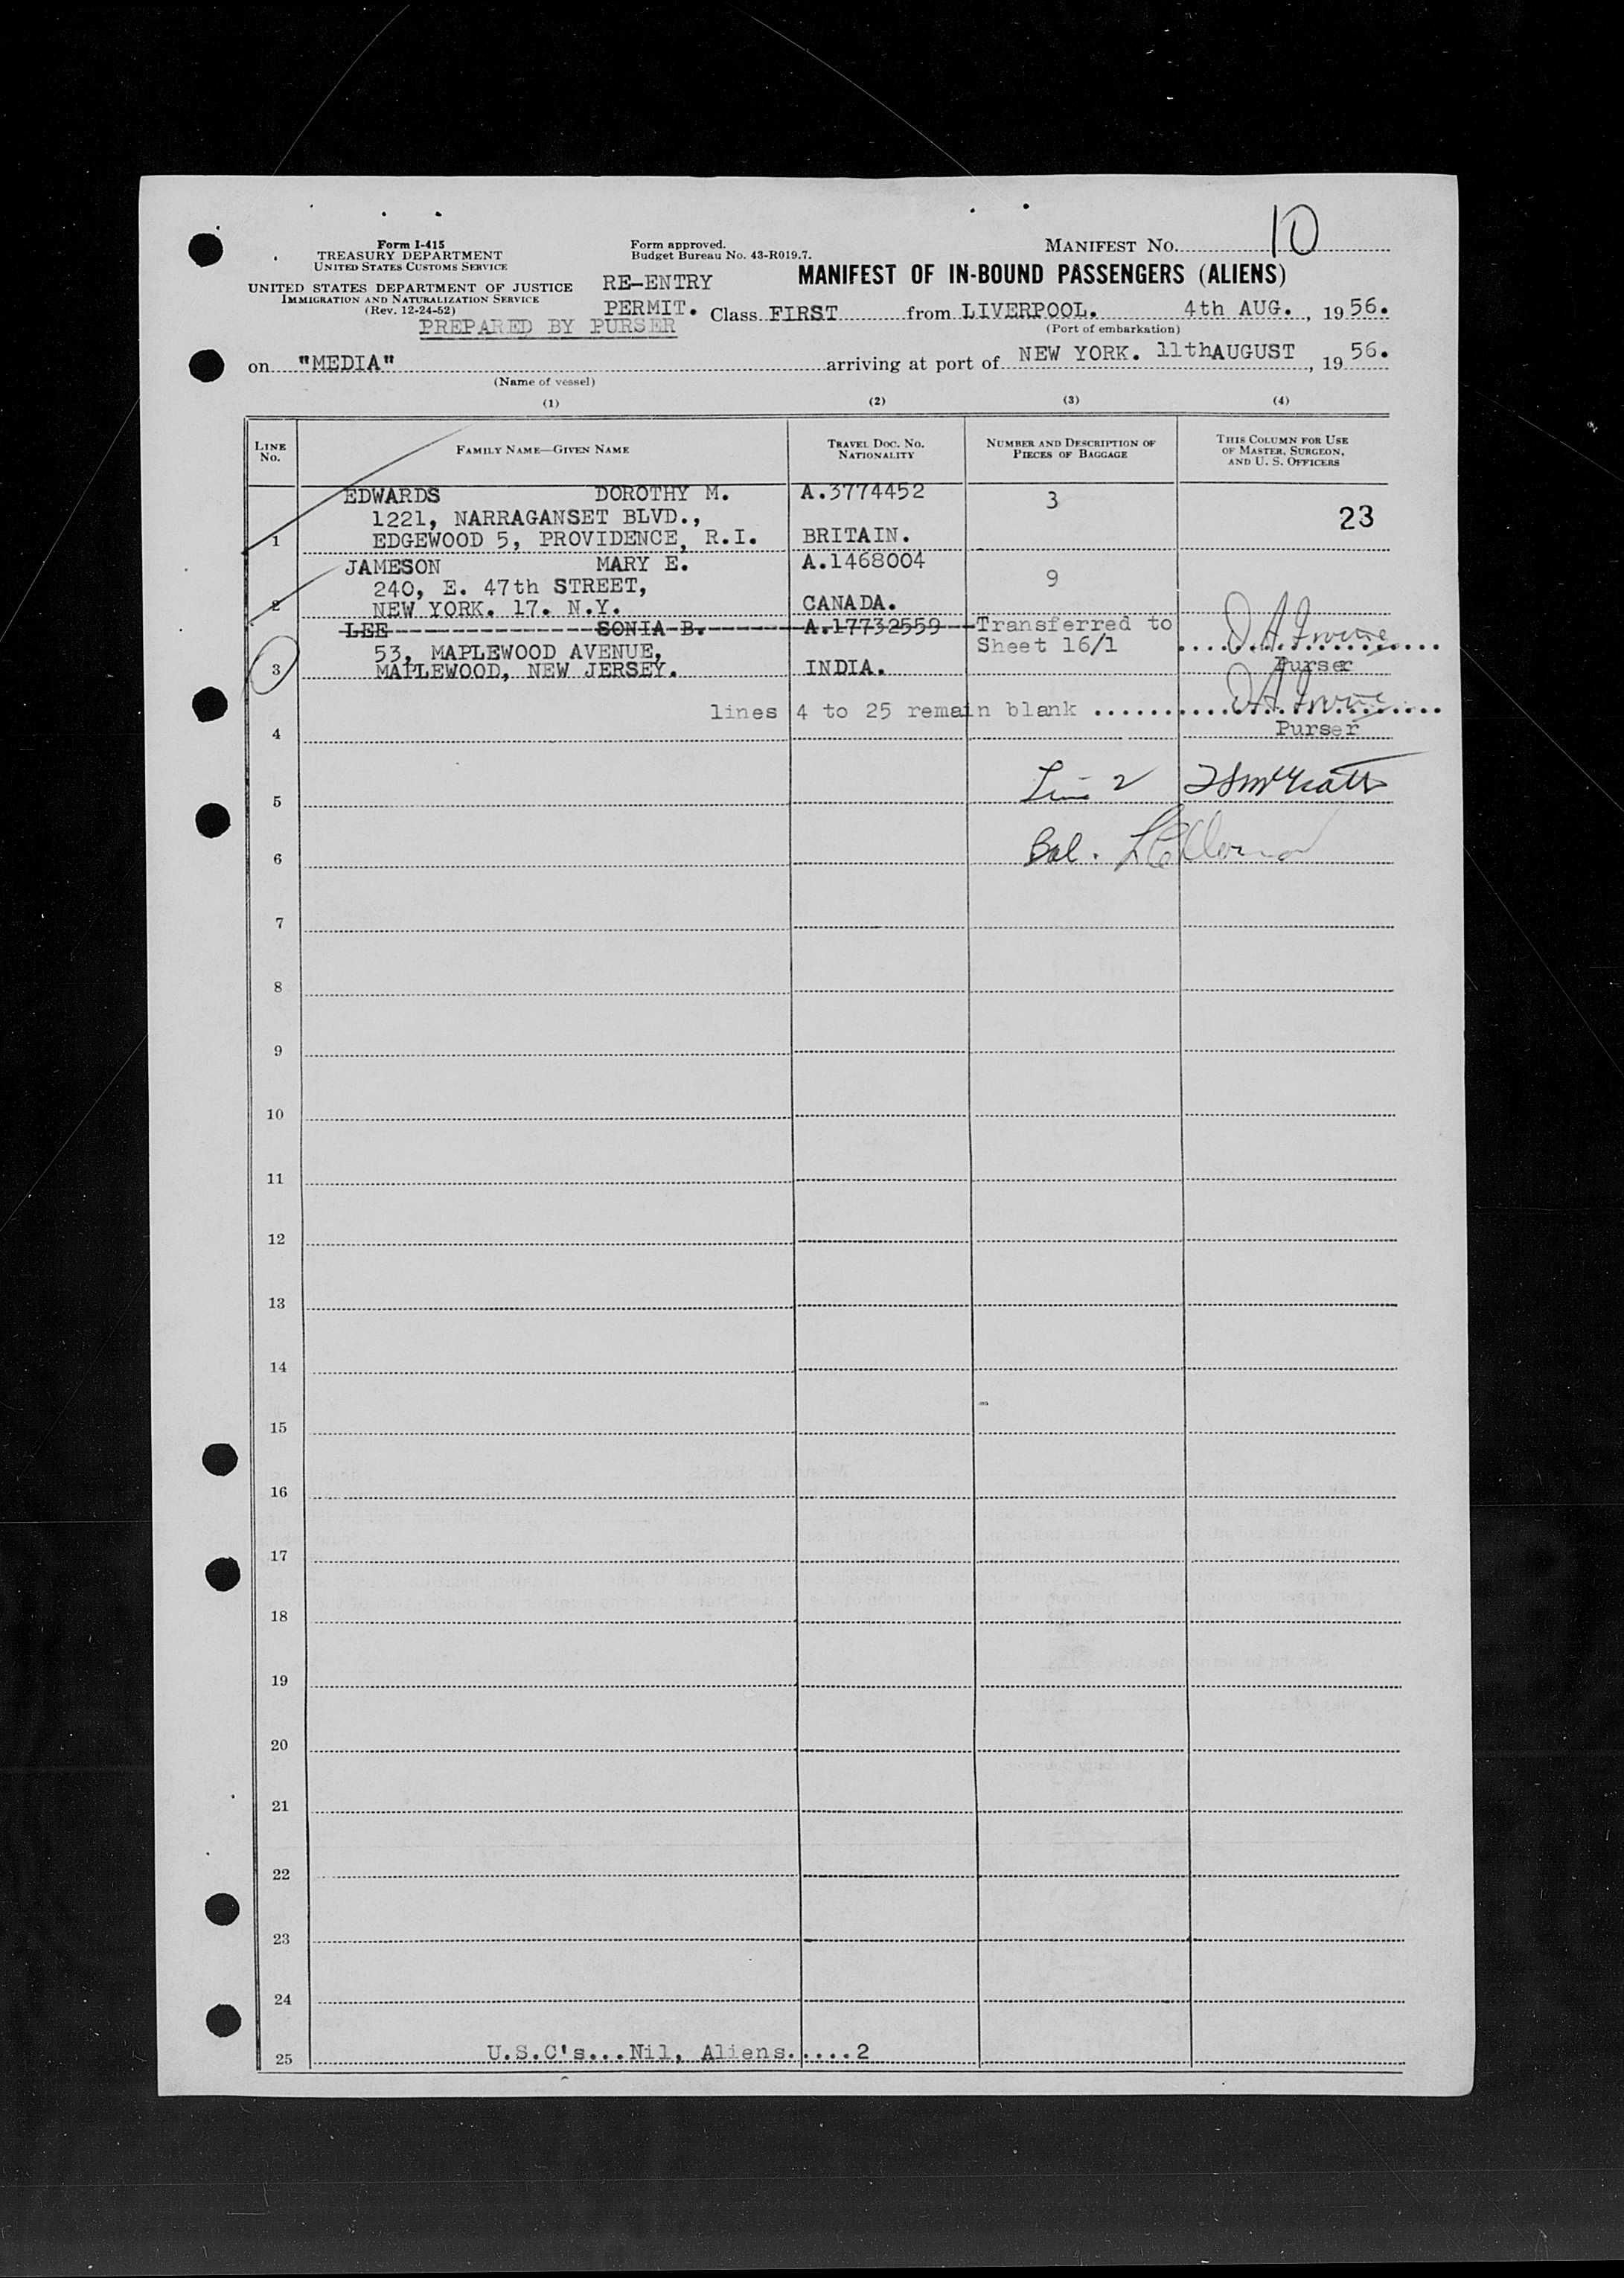 Form I-415
TREASURY DEPARTMENT
UNITED STATES CUSTOMS SERVICE
UNITED STATES DEPARTMENT OF JUSTICE
IMMIGRATION AND NATURALIZATION SERVICE
(Rev. 12-24-52)
PREPARED BY PURSER
Form approved.
Budget Bureau No. 43-R019.7.
RE-ENTRY
PERMIT.
MANIFEST NO. 10
MANIFEST OF IN-BOUND PASSENGERS (ALIENS)
Class FIRST from LIVERPOOL. 4th AUG. , 19 56.
(Port of embarkation)
on "MEDIA" arriving at port of NEW YORK. 11thAUGUST , 19 56.
(Name of vessel)
(1) (2) (3) (4)
LINE No. FAMILY NAME—GIVEN NAME TRAVEL DOC. NO. NATIONALITY NUMBER AND DESCRIPTION OF PIECES OF BAGGAGE THIS COLUMN FOR USE OF MASTER, SURGEON, AND U. S. OFFICERS
EDWARDS DOROTHY M. A.3774452 3
1221, NARRAGANSET BLVD., 23
1 EDGEWOOD 5, PROVIDENCE, R.I. BRITAIN.
JAMESON MARY E. A.1468004
240, E. 47th STREET, 9
2 NEW YORK. 17. N.Y. CANADA.
LEE SONIA B. A.17732559 Transferred to
53, MAPLEWOOD AVENUE, Sheet 16/1
3 MAPLEWOOD, NEW JERSEY. INDIA. Purser
lines 4 to 25 remain blank
4 Purser
5 Line 2
6 Bal.
7
8
9
10
11
12
13
14
15
16
17
18
19
20
21
22
23
24
25 U.S.C's...Nil, Aliens.....2